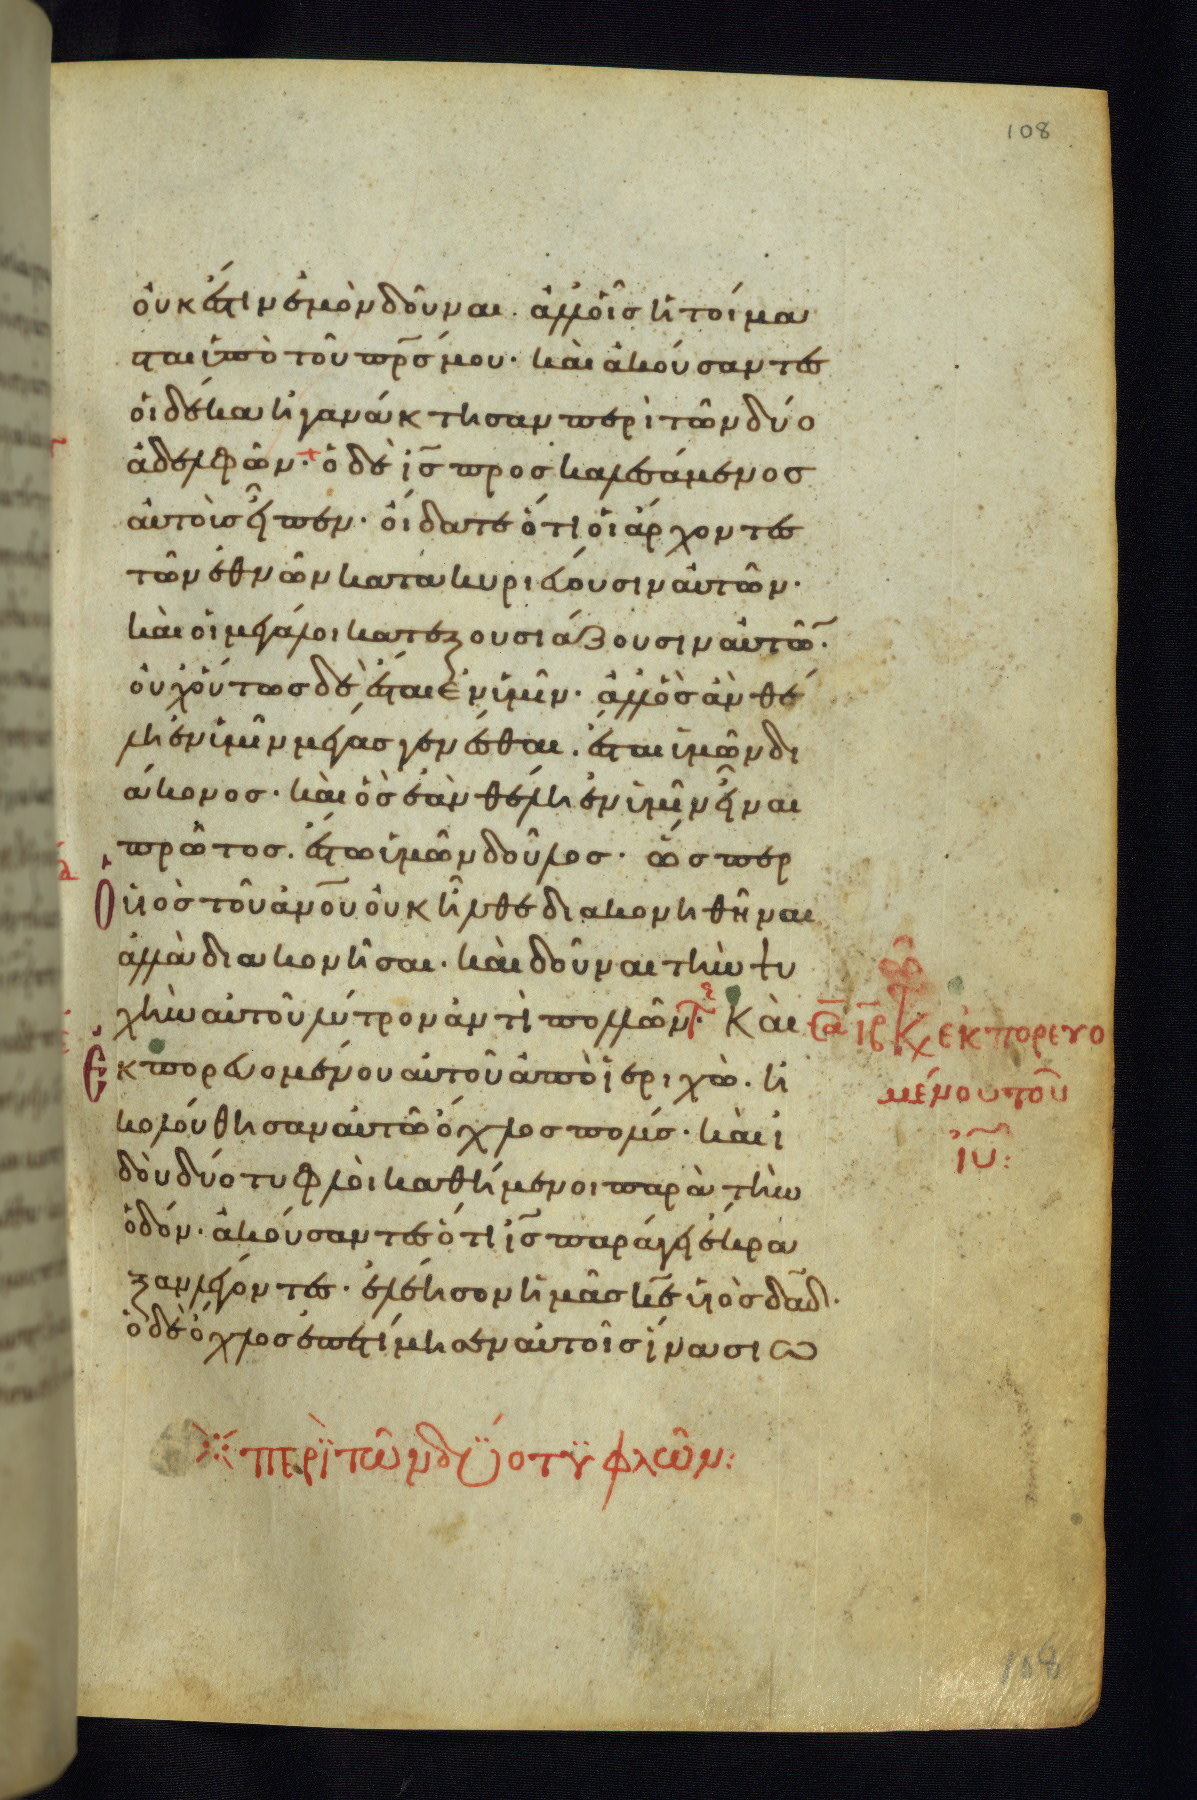 108
οὐκ ἔστιν ἐμὸν δοῦναι· ἀλλ' οἷς ἡτοίμα
σται ὑπὸ τοῦ πρ̅ς μου· καὶ ἀκούσαντες
οἱ δέκα ἠγανάκτησαν περὶ τῶν δύο
ἀδελφῶν· ὁ δὲ ι̅ς προσκαλεσάμενος
αὐτοὺς εἶπεν· οἴδατε ὅτι οἱ ἄρχοντες
τῶν ἐθνῶν κατακυριεύουσιν αὐτῶν·
καὶ οἱ μεγάλοι κατεξουσιάζουσιν αὐτῶ̅·
οὐχ οὕτως δὲ ἔσται ἐν ὑμῖν· ἀλλ' ὃς ἂν θέ
λη ἐν ὑμῖν μέγας γενέσθαι· ἔσται ὑμῶν δι
άκονος· καὶ ὃς ἐὰν θέλη ἐν ὑμῖν εἶναι
πρῶτος· ἔστω ὑμῶν δοῦλος· ὥσπερ
ὁ υἱὸς τοῦ ἀν̅ου οὐκ ἦλθε διακονηθῆναι
ἀλλὰ διακονῆσαι· καὶ δοῦναι τὴν ψυ
χὴν αὐτοῦ λύτρον ἀντὶ πολλῶν· Καὶ
ἐκπορευομένου αὐτοῦ ἀπὸ ἱεριχὼ· ἠ
κολούθησαν αὐτῶ ὄχλος πολύς· καὶ ἰ
δοὺ δύο τυφλοὶ καθήμενοι παρὰ τὴν
ὁδόν· ἀκούσαντες ὅτι ι̅ς παράγει ἔκρα
ξαν λέγοντες· ἐλέησον ἡμᾶς κ̅ε υἱὸς δα̅δ·
ὁ δὲ ὄχλος ἐπετίμησεν αὐτοῖς ἵνα σιω
ἐκπορευο
μένου τοῦ
ι̅υ:
περὶ τῶν δύο τυφλῶν:
108